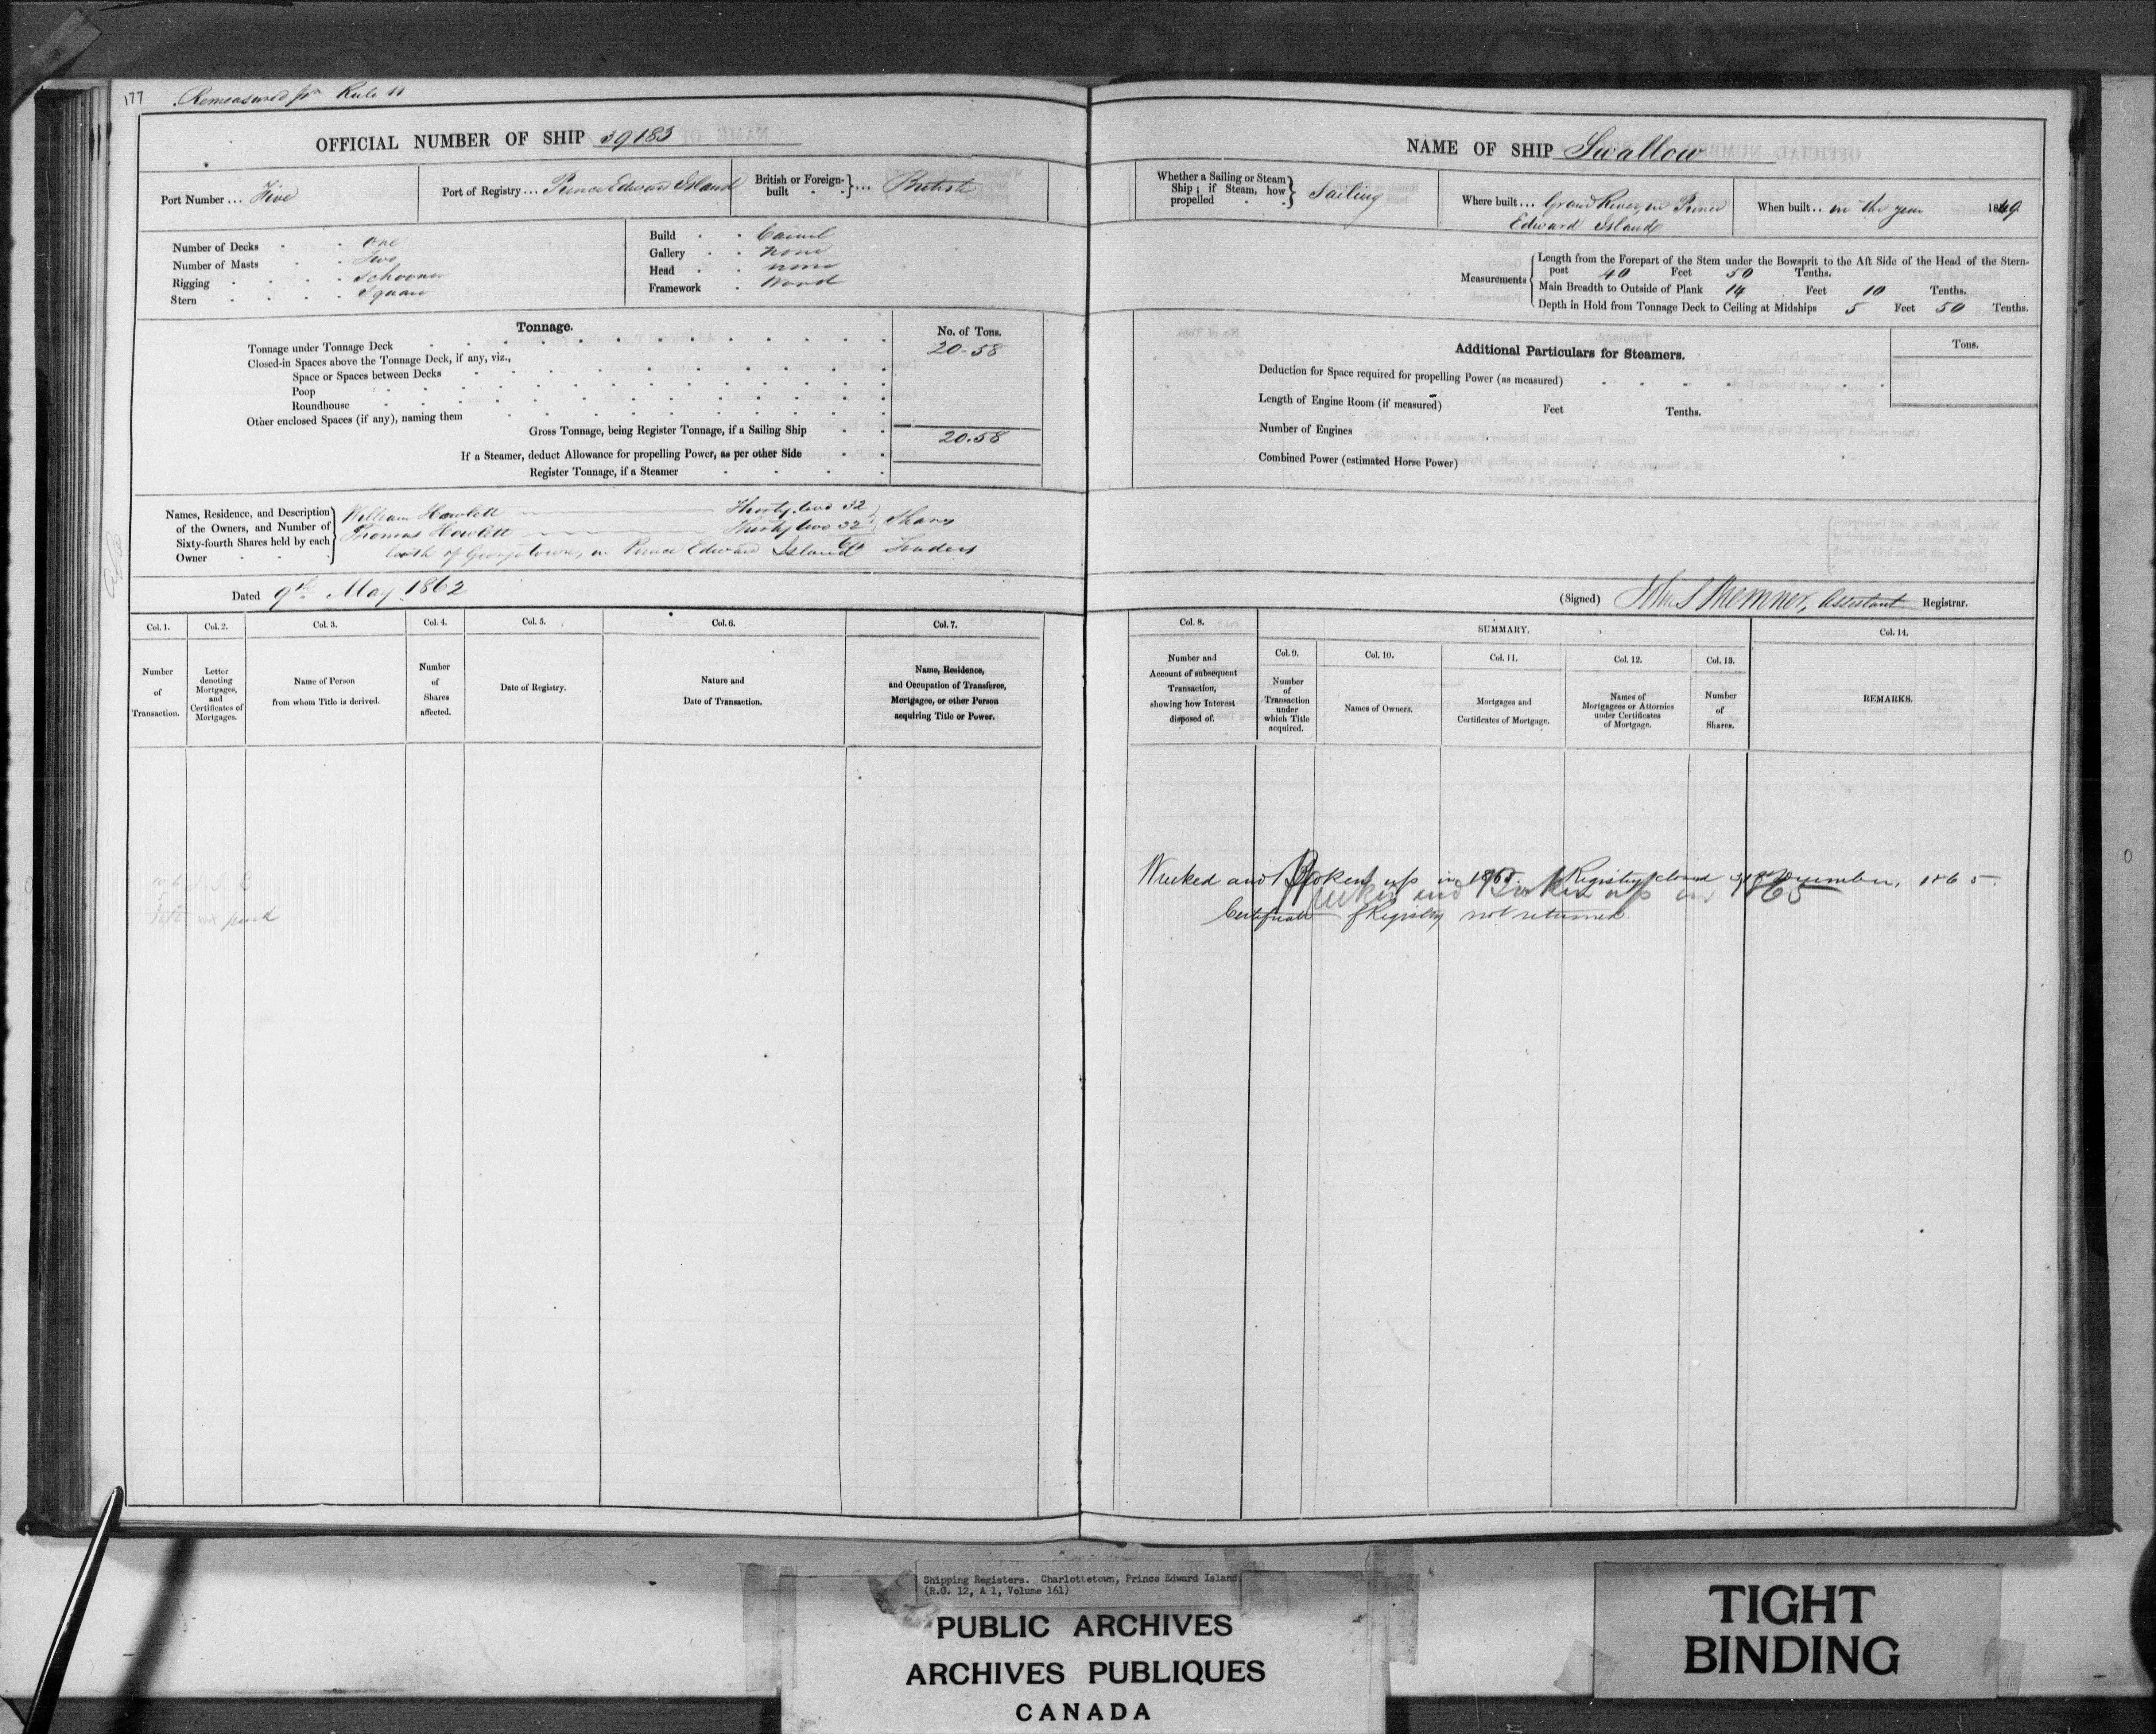 177 Remeasured for Rule 11
OFFICIAL NUMBER OF SHIP 39183
Port Number ... Five
Port of Registry ... Prince Edward Island
British or Foreign-built } ... British
Number of Decks one
Number of Masts Two
Rigging Schooner
Stern Square
Build Carvel
Gallery none
Head none
Framework Wood
Tonnage.
No. of Tons.
Tonnage under Tonnage Deck 20.58
Closed-in Spaces above the Tonnage Deck, if any, viz.,
Space or Spaces between Decks
Poop
Roundhouse
Other enclosed Spaces (if any), naming them
Gross Tonnage, being Register Tonnage, if a Sailing Ship 20.58
If a Steamer, deduct Allowance for propelling Power, as per other Side
Register Tonnage, if a Steamer
Names, Residence, and Description of the Owners, and Number of Sixty-fourth Shares held by each Owner
William Howlett Thirty two 32
Thomas Howlett Thirty two 32 } Shares
64
both of Georgetown, in Prince Edward Island Traders
Dated 9th May 1862
Col. 1. Number of Transaction.
Col. 2. Letter denoting Mortgages, and Certificates of Mortgages.
Col. 3. Name of Person from whom Title is derived.
Col. 4. Number of Shares affected.
Col. 5. Date of Registry.
Col. 6. Nature and Date of Transaction.
Col. 7. Name, Residence, and Occupation of Transferee, Mortgagee, or other Person acquiring Title or Power.
not paid
NAME OF SHIP Swallow
Whether a Sailing or Steam Ship; if Steam, how propelled } Sailing
Where built ... Grand River, in Prince
Edward Island
When built .. in the year 1849
Measurements
Length from the Forepart of the Stem under the Bowsprit to the Aft Side of the Head of the Stern-
post 40 Feet 50 Tenths.
Main Breadth to Outside of Plank 14 Feet 10 Tenths.
Depth in Hold from Tonnage Deck to Ceiling at Midships 5 Feet 50 Tenths.
Additional Particulars for Steamers.
Tons.
Deduction for Space required for propelling Power (as measured)
Length of Engine Room (if measured) Feet Tenths.
Number of Engines
Combined Power (estimated Horse Power)
(Signed) Assistant Registrar.
Col. 8. Number and Account of subsequent Transaction, showing how Interest disposed of.
SUMMARY.
Col. 9. Number of Transaction under which Title acquired.
Col. 10. Names of Owners.
Col. 11. Mortgages and Certificates of Mortgage.
Col. 12. Names of Mortgagees or Attornies under Certificates of Mortgage.
Col. 13. Number of Shares.
Col. 14. REMARKS.
Wrecked and Broken up in 1865. Registry closed 31st December, 1865.
Wrecked and Broken up in 1865
Certificate of Registry not returned.
Shipping Registers. Charlottetown, Prince Edward Island.
(R.G. 12, A 1, Volume 161)
PUBLIC ARCHIVES
ARCHIVES PUBLIQUES
CANADA
TIGHT
BINDING